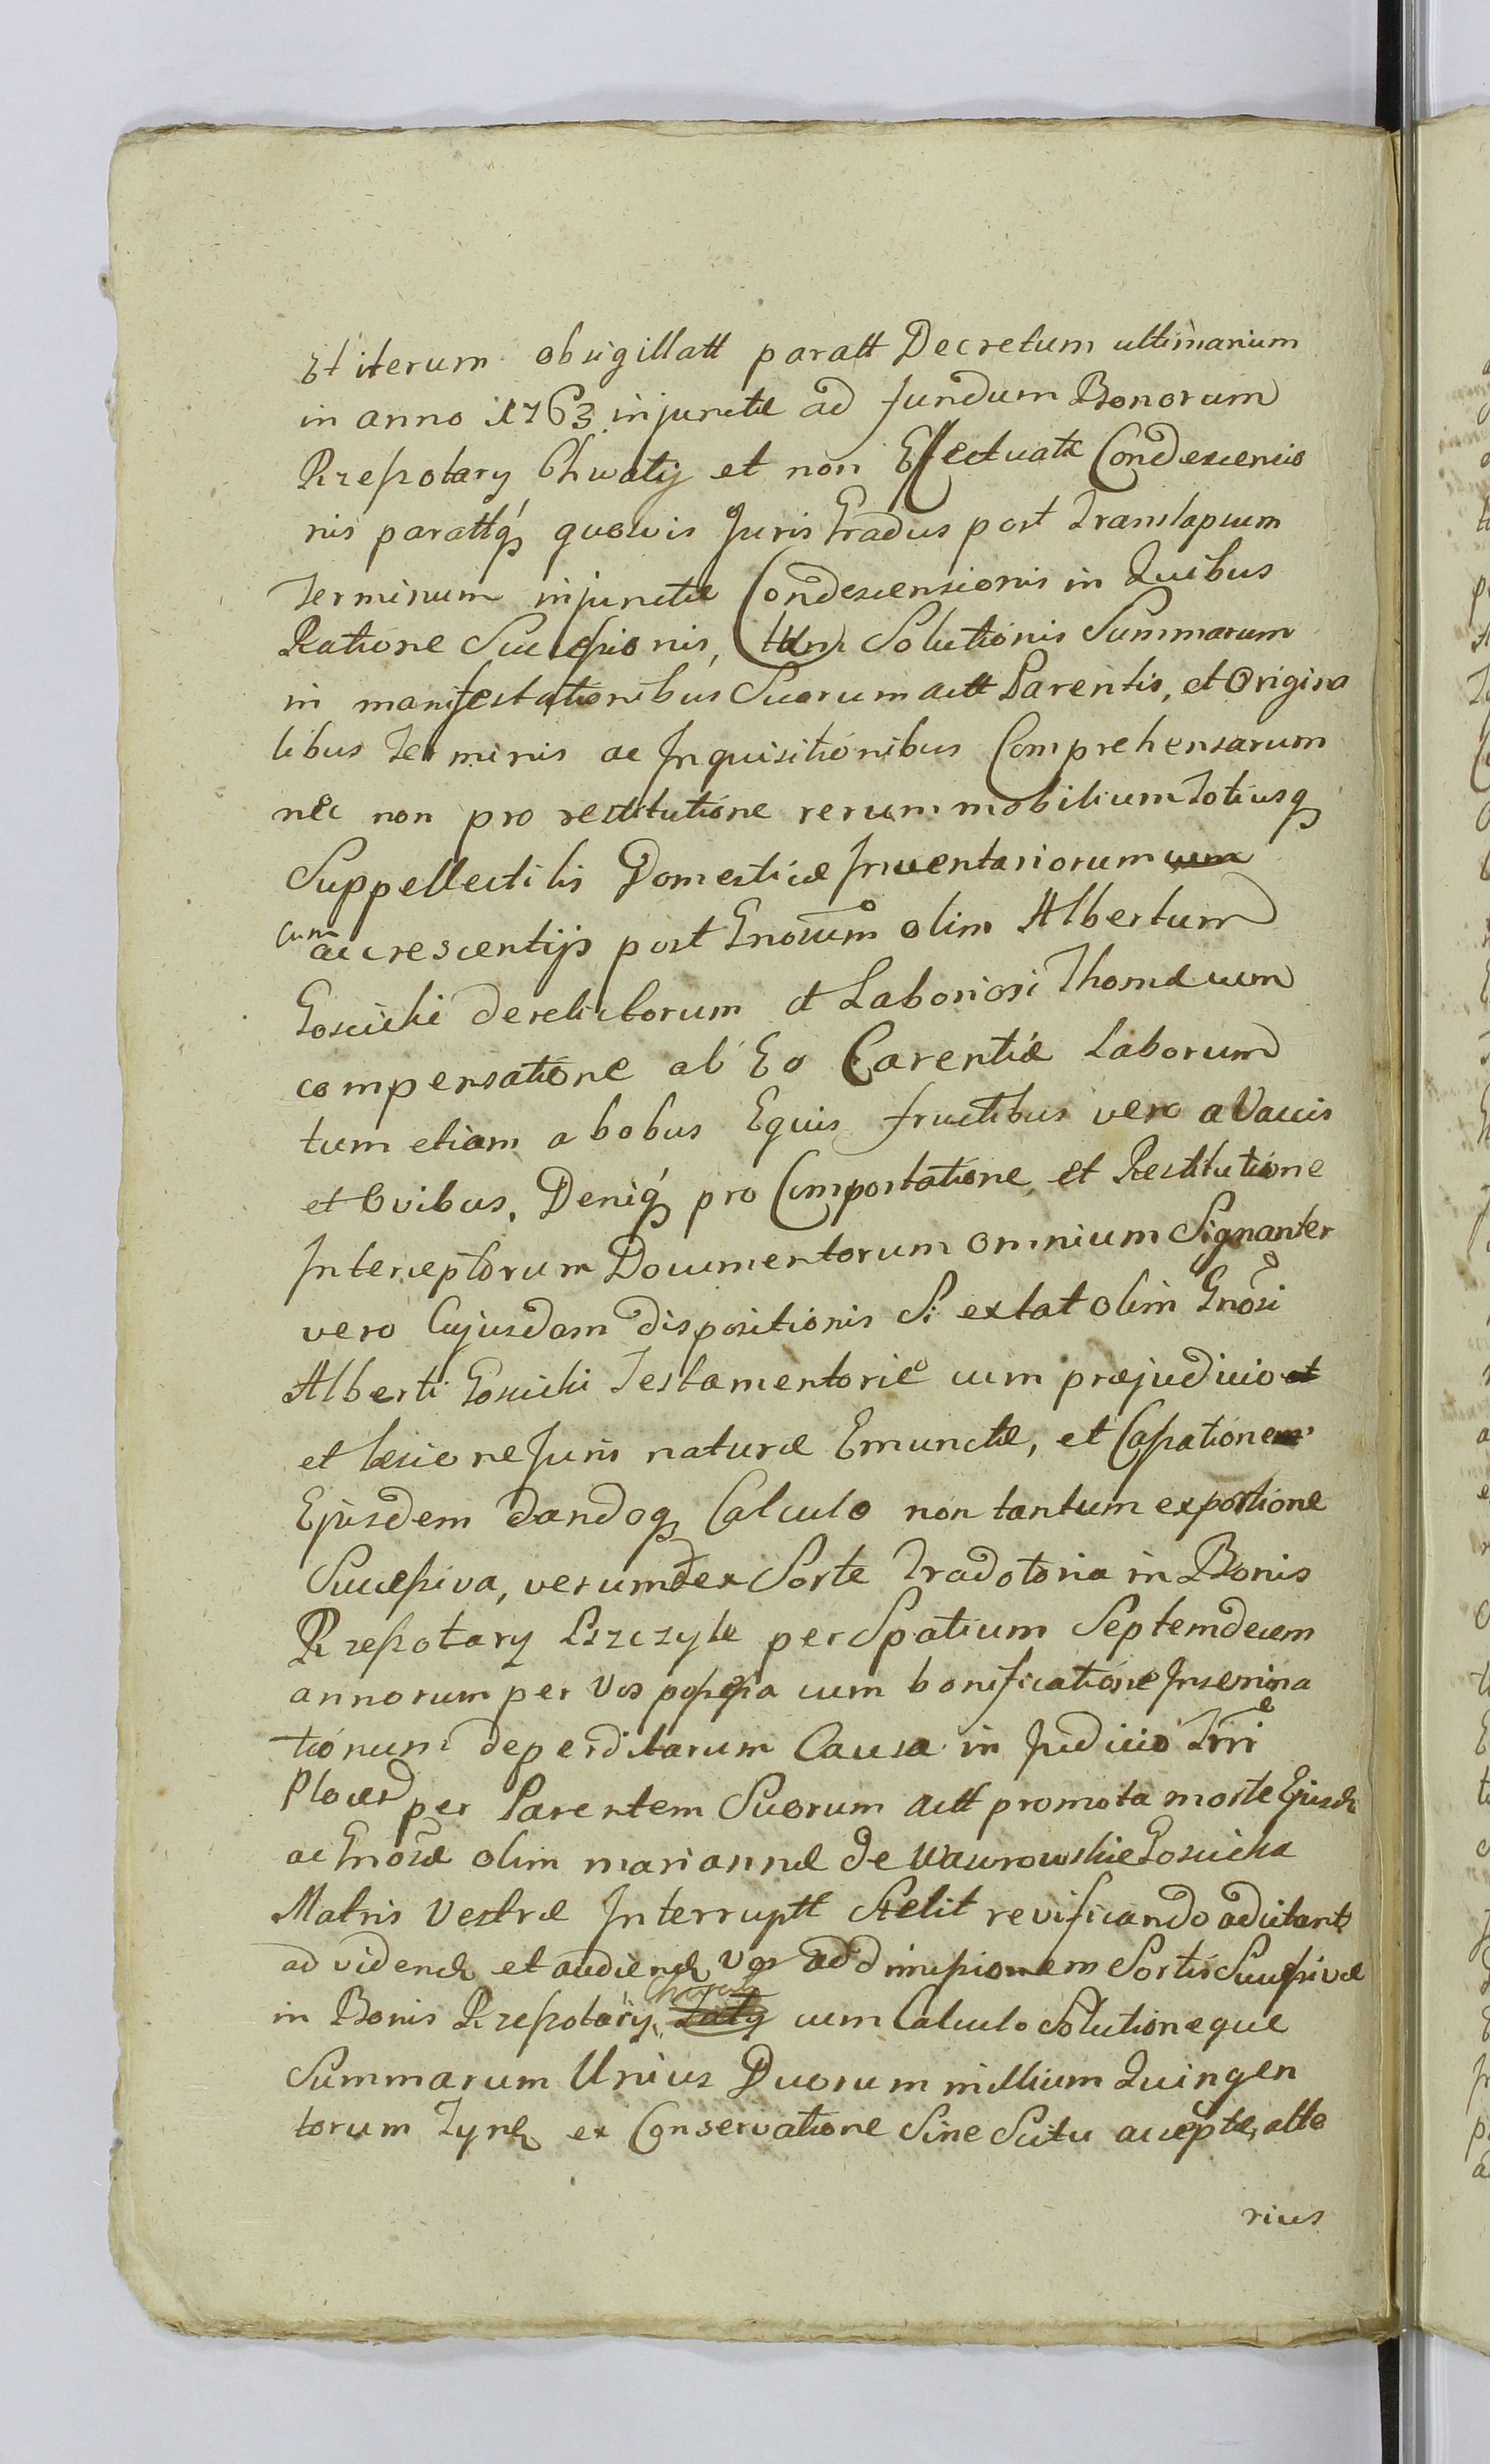 Et iterum obsigillatt paratt Decretum ultimarium
in anno 1763 injunctæ ad fundum Bonorum
Rzeszotary Chwały et non Effectuatæ Condescensio
nis parattq́ quovis Juris Gradus post Translapsum
Terminum injunctæ Condescensionis in Quibus
Ratione Successionis, tum Solutionis Summarum
in manifestationibus Suorum actt Parentis, et Origina
libus Terminis ac Inquisitionibus Comprehensarum
nec non pro restitutione rerum mobilium Totiusq
Suppellectilis Domesticæ Inventariorum cum
cum accrescentijs post Gnosum olim Albertum
Gosicki derelictorum et Laboriosi Thomæ cum
compensatione ab Eo Carentiæ Laborum
tum etiam a bobus Equis fructibus vero a Vaccis
et Ovibus, Deniq́ pro Comportatione et Restitutione
Interceptorum Documentorum omnium Signanter
vero Cujusdam dispositionis Si extat olim Gnosi
Alberti Gosicki Testamentoriæ cum præjudicio et
et læsione Juris naturæ Emunctæ, et Cassatione
Ejusdem dandoq Calculo non tantum ex portione
Successiva, verum et ex Sorte Tradotoria in Bonis
Rzeszotary Pszczyłe per Spatium Septemdecem
annorum per Vos possessa cum bonificatione Insemina
tionum deperditarum Causa in Judicio Trri
Plocen per Parentem Suorum actt promota morte Ejusd
ac Gnosæ olim mariannæ de Wawrowskie Gosicka
Matris Vestræ Interruptt Stetit revificando adcitant
ad videnđ et audienđ Vos ad dimissionem Sortis Successivæ
in Bonis Rzeszotary Chwały cum Calculo Solutioneque
Summarum Unius Duorum millium Quingen
torum Tynf ex Conservatione Sine Scitu acceptæ, alte
rius